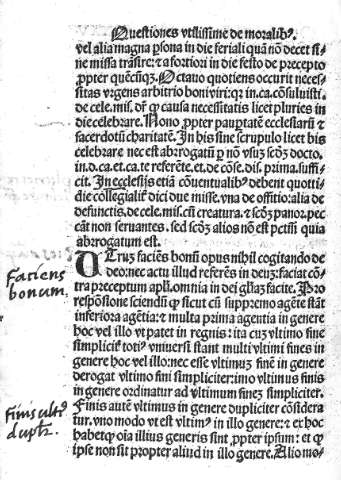 Questiones vtilissime de moralib⁹.
vel alia magna ꝑsona in die feriali quā nō decet si-
ne missa trāsire: ⁊ a fortiori in die festo de precepto
ꝓpter quēcūqꝫ. Octauo quotiens occurit neces-
sitas vrgens arbitrio boni viri: qꝛ in .ca. cōsuluisti.
de cele. mis. dr̄ ꝙ causa necessitatis licet pluries in
die celebrare. Nono ꝓpter pauꝑtatē ecclesiarū ⁊
sacerdotū charitatē. In his sine scrupulo licet bis
celebrare nec est abrogatū ꝑ nō vsuꝫ scdꝫ docto.
in. d. ca. et ca. te referēte. et. de cōse. dis. prima. suffi-
cit. In ecclesijs etiā cōuentualib⁹ debent quotti-
die collegialit̓ dici due misse. vna de offitio: alia de
defunctis. de cele. mis. cū creatura. ⁊ scdꝫ panor. pec
cāt non seruantes. sed scdꝫ alios nō est pctm̄ quia
abrogatum est.
Faciens bonum.
UTruꝫ faciēs bonū opus nihil cogitando de
deo: nec actu illud referēs in deuꝫ: faciat cō-
tra preceptum apl̓i. omnia in dei gl̓iaꝫ facite. Pro
respōsione sciendū ꝙ sicut cū suppremo agēte stāt
inferiora agētia: ⁊ multa prima agentia in genere
hoc vel illo vt patet in regnis: ita cuꝫ vltimo fine
simplicit̓ toti⁹ vniuersi stant multi vltimi fines in
genere hoc vel illo: nec esse vltimuꝫ finē in genere
derogat vltimo fini simpliciter: imo vltimus finis
in genere ordinatur ad vltimum fineꝫ simpliciter.
Finis ultī⁹ duplr̄.
Finis autē vltimus in genere dupliciter cōsidera
tur. vno modo vt est vltim⁹ in illo genere: ⁊ ex hoc
habet ꝙ oīa illius generis sint ꝓpter ipsum: et ꝙ
ipse non sit ꝓpter aliud in illo genere. Alio mo-